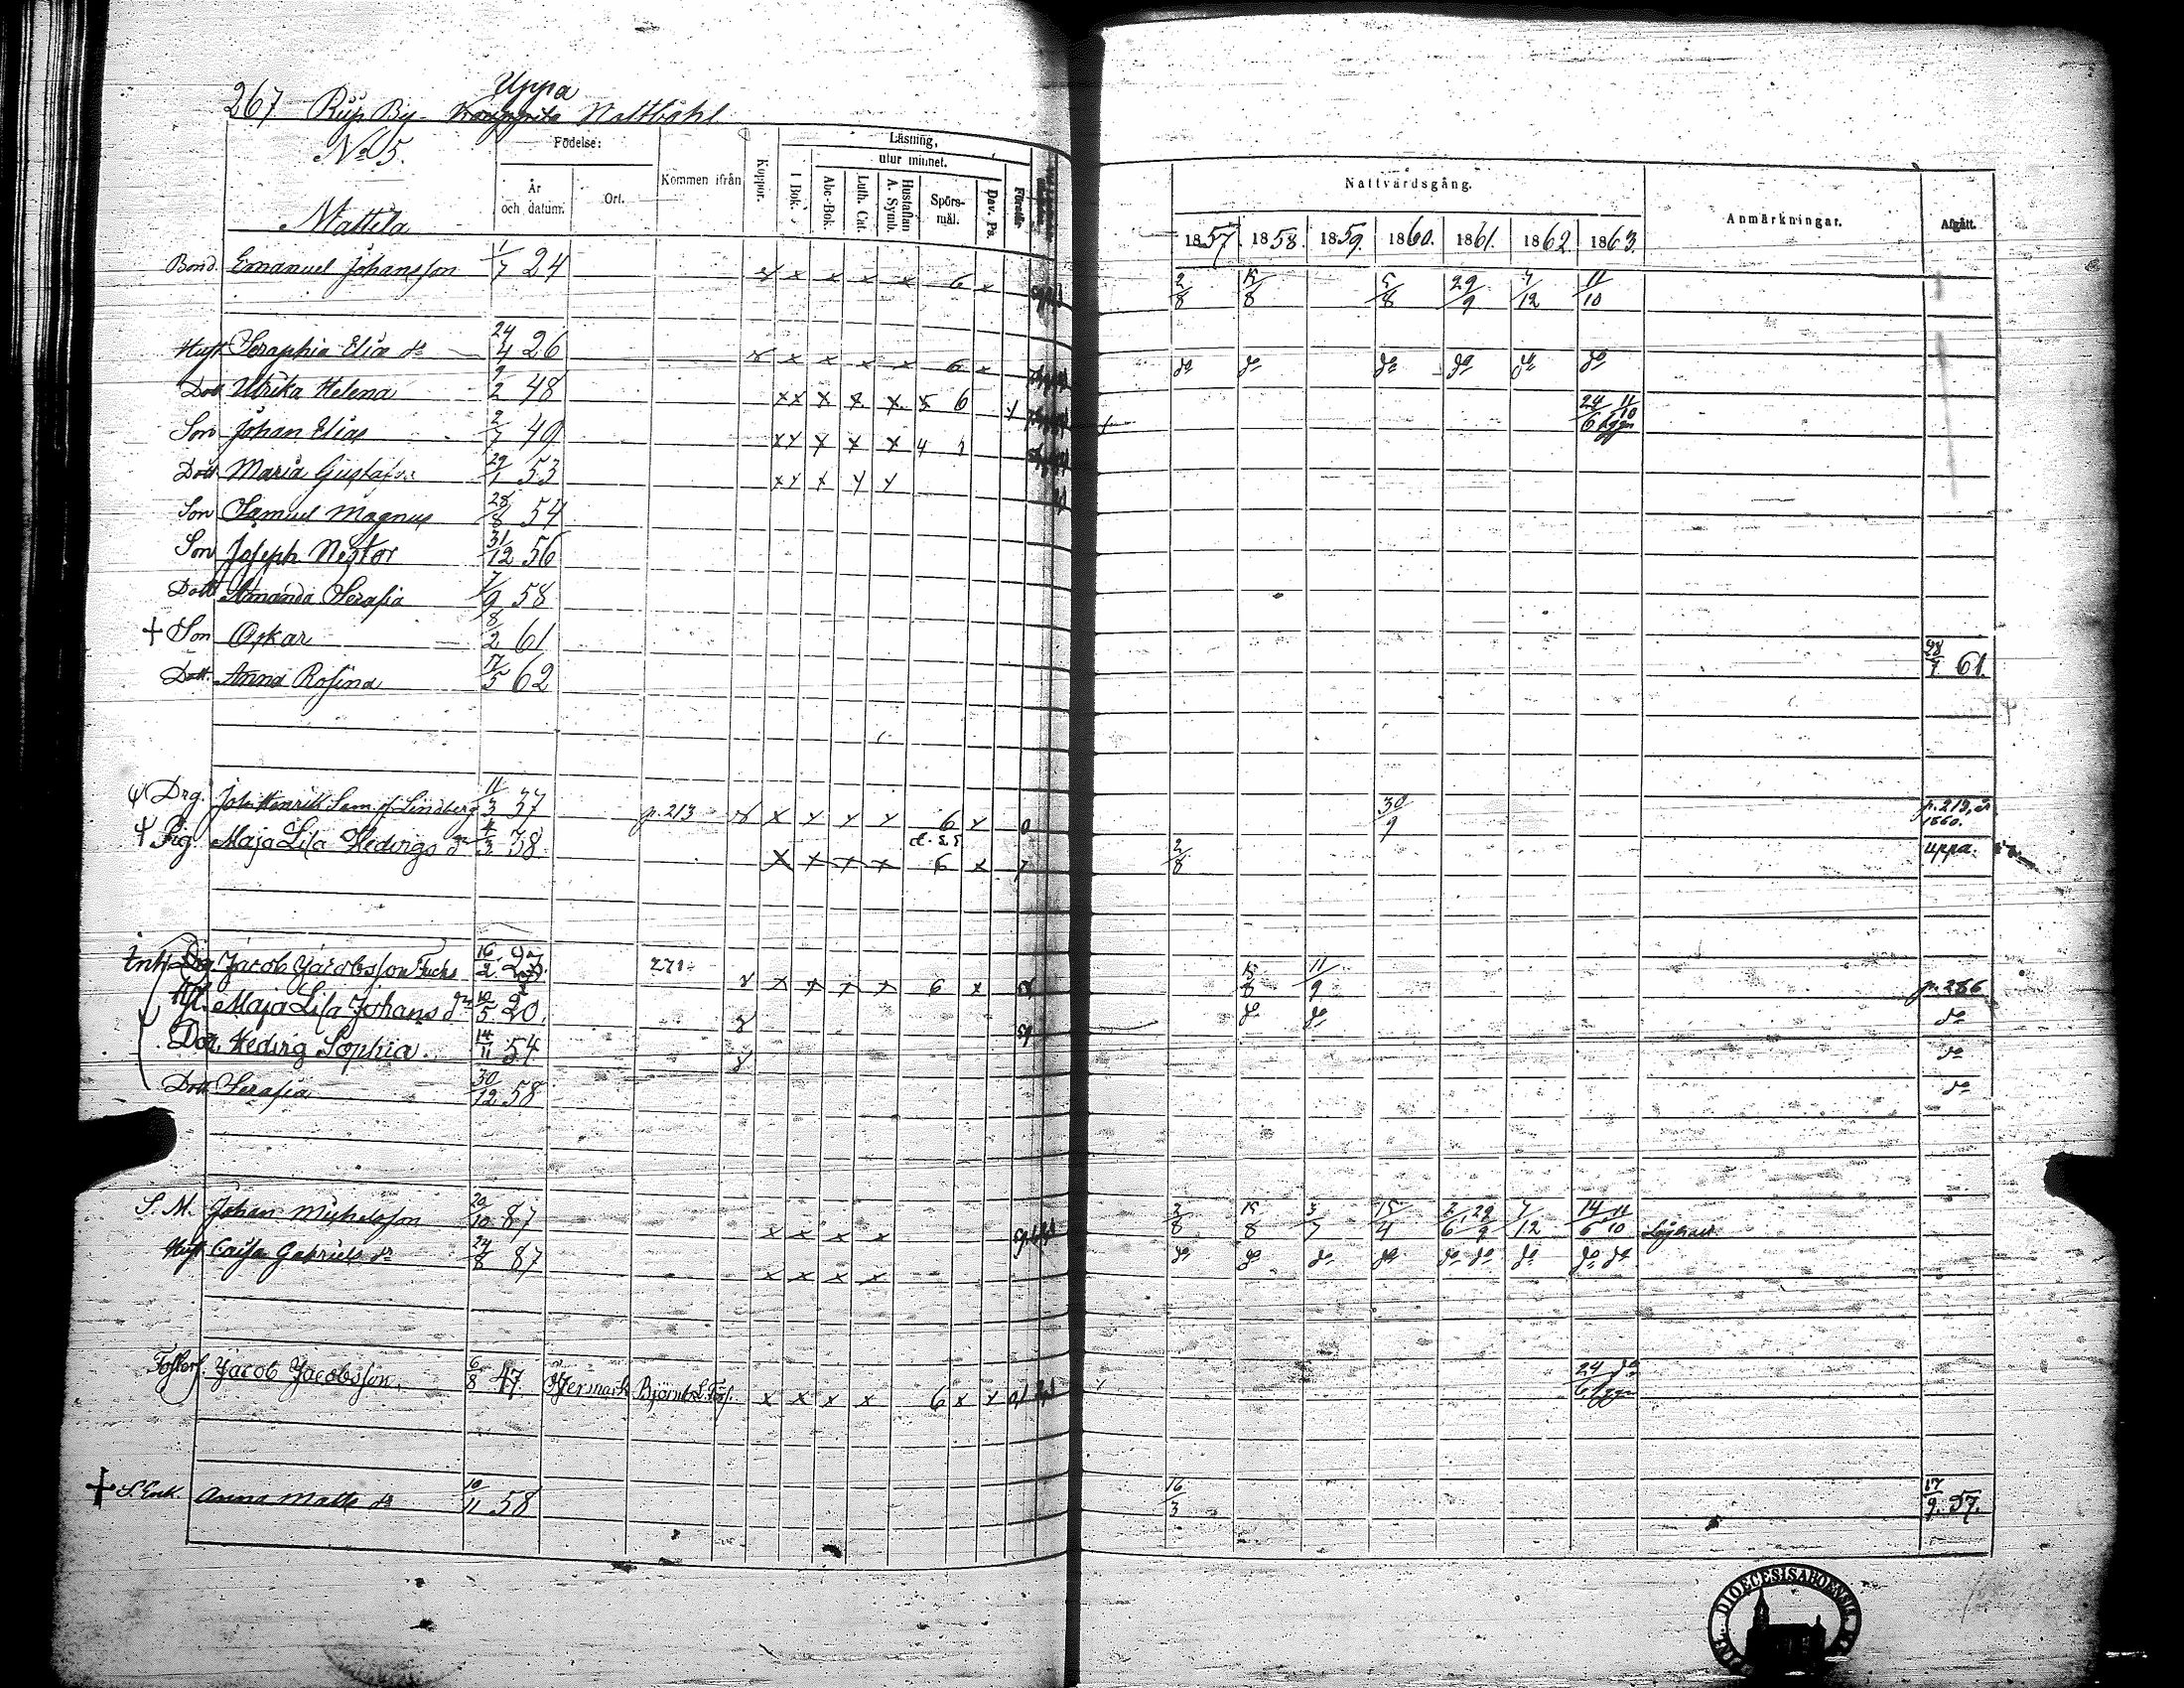 267 Rüp By Uppa Nattbohl
No 5.
Mattila
Födelse:
År och datum.
Ort.
Kommen ifrån
Koppor.
Läsning,
utur minnet.
I Bok.
Abc-Bok.
Luth. Cat.
Hustaflan A. Symb.
Spörs-mål.
Dav. Ps.
Nattvardsgång.
1857. 1858. 1859. 1860. 1861. 1862 1863.
Anmärkningar.
Afgått.
Bond. Emanuel Johansson 1/7 24 x x x x 6 x 2/8 15/8 5/8 29/9 7/12 11/10
Hust Seraphia Eliæ dr 24/4 26 x x x x 6 x do do do do do do
Dott Ulrika Helena 9/2 48 xx x x x 5 6 24/6 11/10
Son Johan Elias 2/7 49 xx x x x 4
Dott Maria Gustafva 29/1 53 xx x x x
Son Samuel Magnus 28/8 54
Son Joseph Nestor 31/12 56
Dott Amanda Serafia 7/9 58
+ Son Oskar 8/2 61 28/7 61.
Dott. Anna Rosina 17/5 62
Drg. Joh. Henrik Sam. sf. Lindberg 11/3 37 p. 213 x x x x 6 x 0 30/9 p. 213, 1860.
Pig. Maja Lisa Hedvigs dr 4/3 38 x x x x 6 x 2/8 uppa.
Inh. Drg. Jacob Jacobsson Fuchs 16/2 271 x x x x 6 x 15/8 11/9 p. 286
Hst. Maja Lisa Johans dr 10/5 20. do do do
Dot. Hedvig Sophia. 14/11 54 do
Dott Serafia 30/12 58 do
S. M. Johan Michelsson 20/10 87 x x x x 2/8 15/8 3/7 15/4 2/6 29/9 7/12 14/6 11/10
Hust Caisa Gabriels dr 24/8 87 x x x x do do do do do do do do do
Fosters. Jacob Jacobsson. 6/8 47. x x x x 6 x x 24/6 do
+ S. Enk. Anna Matts dr 10/11 58 16/3 17/9. 57.
DIOECESIS ABOENSIS